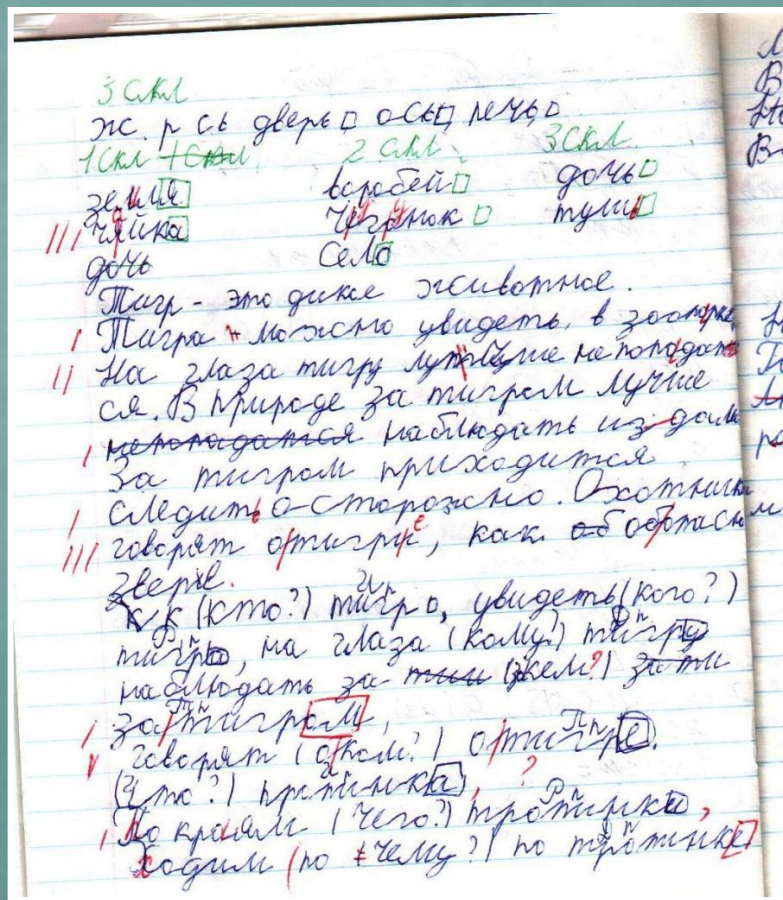 3 скл
ж. р сь дверь ось, печь,
1 скл 2 скл. 3 скл.
земля воробей дочь
чайка тушь
дочь село
Тигр - это дикое животное.
Тигра можно увидеть, в зоопарке
На глаза тигру луч ше не попадать
ся. В природе за тигром лучше
непопадатся наблюдать из дали
За тигром приходится
следить о-сторожно. Охотники
говорят отигре, как об обопасном
звере.
(кто?) тигр, увидеть (кого?)
тигра, на глаза (кому?) тигру
наблюдать за тии (зкем?) за ти
за тигром,
говорят (о ком?) о тигре.
(Что?) тропинка, ?
По краям (чего?) тропинки,
Ходим (по чему?) по тропинке